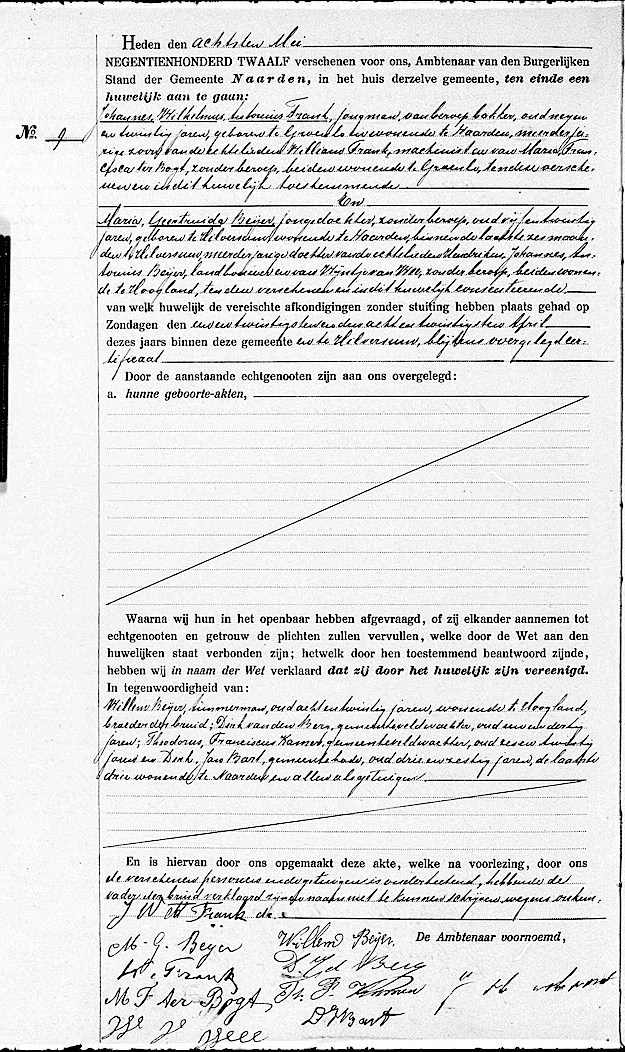 Heden den achtsten Mei
NEGENTIENHONDERD TWAALF verschenen voor ons, Ambtenaar van den Burgerlijken
Stand der Gemeente Naarden, in het huis derzelve gemeente, ten einde een
huwelijk aan te gaan:
Johannes, Wilhelmus, Antonius Frank, jongman, van beroep bakker, oud negen
No. 9
en twintig jaren, geboren te Groenlo en wonende te Naarden, meerderja-
rige zoon van de echtelieden Willem Frank, machinist en van Maria, Fran-
cisca ter Bogt, zonder beroep, beiden wonende te Groenlo, ten deze versche-
nen en in dit huwelijk toestemmende
En
Maria, Geertruida Beijer, jongedochter, zonder beroep, oud vijf en twintig
jaren, geboren te Hilversum, wonende te Naarden, binnen de laatste zes maan-
den te Hilversum, meerderjarige dochter van de echtelieden Hendrikus, Johannes, An-
tonius Beijer, landbouwer en van Wijntje van Wee, zonder beroep, beiden wonen-
de te Hoogland, ten deze verschenen en in dit huwelijk consenteerende
van welk huwelijk de vereischte afkondigingen zonder stuiting hebben plaats gehad op
Zondagen den een en twintigsten en den acht en twintigsten April
dezes jaars binnen deze gemeente en te Hilversum, blijkens overgelegd cer-
tificaat
Door de aanstaande echtgenooten zijn aan ons overgelegd:
a. hunne geboorte-akten,
Waarna wij hun in het openbaar hebben afgevraagd, of zij elkander aannemen tot
echtgenooten en getrouw de plichten zullen vervullen, welke door de Wet aan den
huwelijken staat verbonden zijn; hetwelk door hen toestemmend beantwoord zijnde,
hebben wij in naam der Wet verklaard dat zij door het huwelijk zijn vereenigd.
In tegenwoordigheid van:
Willem Beijer, timmerman, oud acht en twintig jaren, wonende te Hoogland,
broeder der bruid; Dirk van den Berg, gemeenteveldwachter, oud een en dertig
jaren; Theodorus, Franciscus Kamer, gemeenteveldwachter, oud zes en twintig
jaren en Dirk, Jan Bart, gemeentebode, oud drie en zestig jaren, de laatste
drie wonende te Naarden en allen als getuigen
En is hiervan door ons opgemaakt deze akte, welke na voorlezing, door ons
de verschenen personen en de getuigen is onderteekend, hebbende de
vader der bruid verklaard zijnen naam niet te kunnen schrijven wegens
J W A Frank
M. G. Beijer Willem Beijer. De Ambtenaar voornoemd,
W. Frank D. v d Berg
M F ter Bogt Th. F.
D J Bart